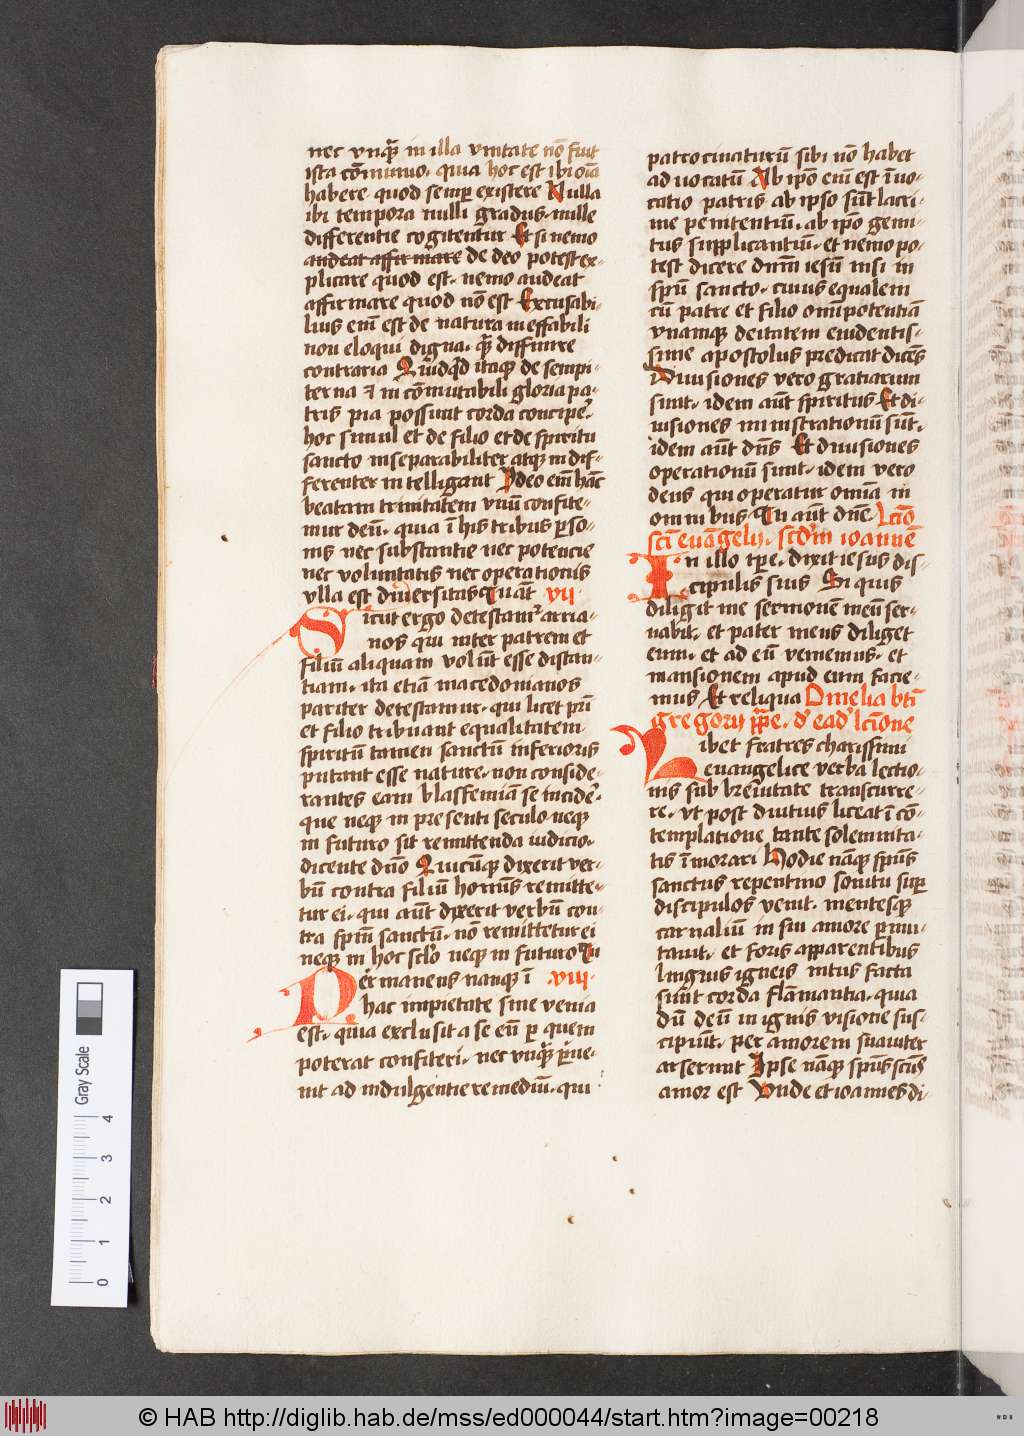 nec vnq̄ in illa vnitate nō fuit
ista cōmunio· quia hoc est ibi oīa
habere quod semꝑ existere Nulla
ibi tempora nulli gradus· nulle
differentie cogitentur Et si nemo
audeat affirmare de deo potest ex-
plicare quod est· nemo audeat
affirmare quod nō est Excusabi-
lius em̄ est de natura ineffabili
non eloqui digna· q̄ diffinire
contraria Quidq̄d itaqꝫ de sempi-
terna ⁊ incōmutabili gloria pa-
tris pia possunt corda concipe᷑·
hoc simul et de filio et de spiritu
sancto inseparabiliter atqꝫ indif-
ferenter intelligant Ideo em̄ hāc
beatam trinitatem vnū confite-
mur deū· quia ī his tribus ꝑso-
nis nec substantie nec potencie
nec voluntatis nec operationis
vlla est diuersitas Tu aūt vij
Sicut ergo detestam᷑ arria-
nos qui inter patrem et
filiū aliquam volūt esse distan-
tiam· ita etiā macedonianos
pariter detestamur· qui licet pr̄i
et filio tribuant equalitatem
spiritū tamen sanctū inferioris
putant esse nature· non conside-
rantes eam blasfemiam se incide᷑·
que neqꝫ in presenti seculo neqꝫ
in futuro sit remittenda iudicio·
dicente dn̄o Quicūqꝫ dixerit ver-
bū contra filiū hominis remitte-
tur ei· qui aūt dixerit verbū con-
tra spm̄ sanctū· nō remittetur ei
neqꝫ in hoc sclo neqꝫ in futuro Tu
Permanens nanqꝫ ī viij·
hac impietate sine venia
est· quia exclusit a se eū ꝑ quem
poterat confiteri· nec vnq̄ ꝑue-
nit ad indulgentie remediū· qui
patrocinaturū sibi nō habet
aduocatū Ab ipō em̄ est īuo-
catio patris ab ipso sūt lacri-
me penitentiū· ab ipō gemi-
tus supplicantiū· et nemo po-
test dicere dn̄m iesū nisi in
spū sancto· cuius equalem
cū patre et filio om̄ipotentiā
vnamqꝫ deitatem euidentis-
sime apostolus predicat dicēs
Diuisiones vero gratiarum
sunt· idem aūt spiritus Et di-
uisiones ministrationū sūt·
idem aūt dn̄s Et diuisiones
operationū sunt· idem vero
deus qui operatur omīa in
omnibus Tu aūt dn̄e· Lc̄io
sc̄i euāgelij· scd'm ioannē
In illo tpe· dixit iesus dis-
cipulis suis Si quis
diligit me sermonē meū ser-
uabit· et pater meus diliget
eum· et ad eū veniemus· et
mansionem apud eum facie-
mus Et reliqua Omelia bt̄i
gregorij pp̄e· d' ead' lc̄ione
Libet fratres charissimi
euangelice verba lectio-
nis sub breuitate transcurre-
re· vt post diutius liceat ī cō-
templatione tante solemnita-
tis īmorari Hodie nāqꝫ spūs
sanctus repentino sonitu suꝑ
discipulos venit· mentesqꝫ
carnaliū in sui amore ꝑmu-
tauit· et foris apparentibus
linguis igneis intus facta
sunt corda flāmantia· quia
dū deū in ignis visione sus-
cipiūt· per amorem suauiter
arserunt Ipse nāqꝫ spūs sc̄us
amor est Vnde et ioannes di-
Gray Scale
0 1 2 3 4
© HAB http://diglib.hab.de/mss/ed000044/start.htm?image=00218